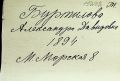 Бурталова
Александра Давидовна
1894
М. Морская 8